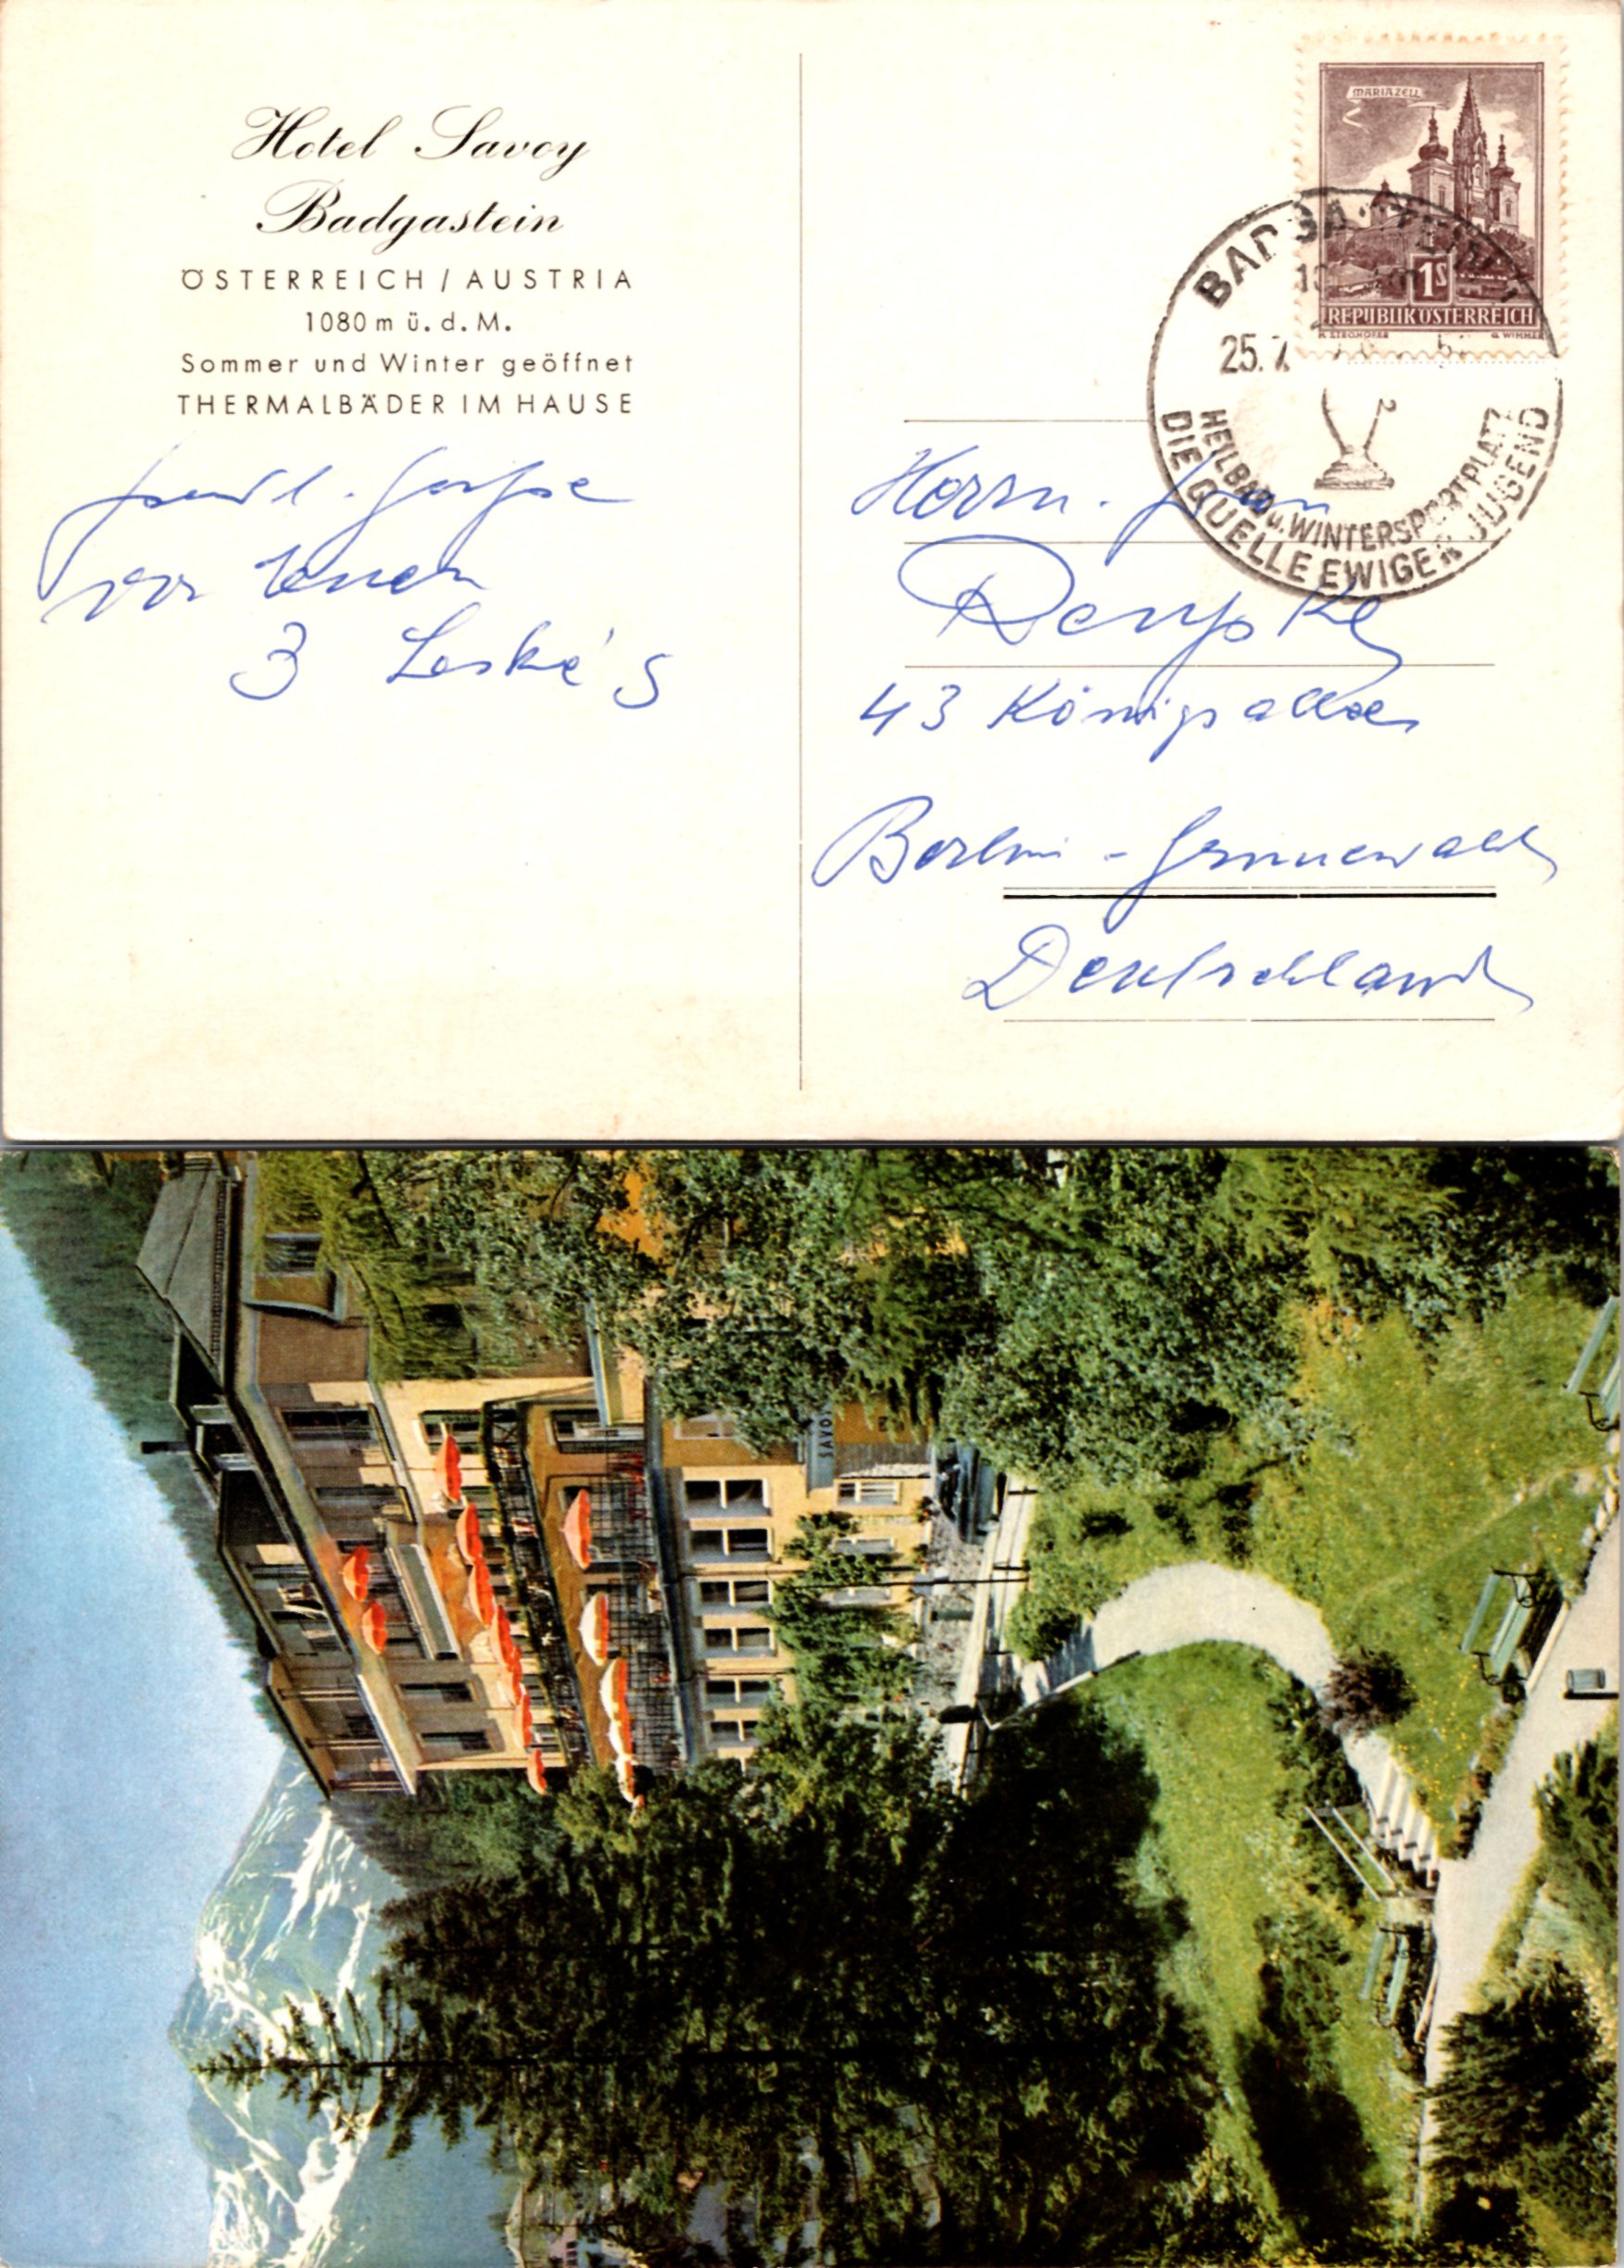 Hotel Savoy
Badgastein
ÖSTERREICH / AUSTRIA
1080 m ü. d. M.
Sommer und Winter geöffnet
THERMALBÄDER IM HAUSE
von Ihnen
3 Leske's
MARIAZELL
1S
REPUBLIK ÖSTERREICH
25.7.
HEILBAD u. WINTERSPORTPLATZ
DIE QUELLE EWIGER JUGEND
Herrn
43 Königsallee
Berlin - Grunewald
Deutschland
SAVOY